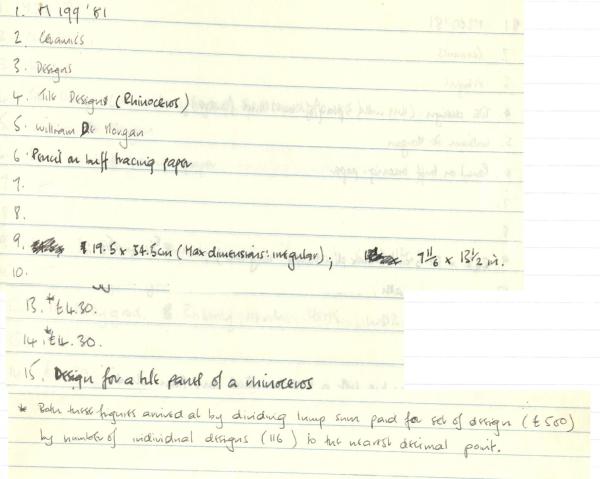 1. M 199 '81
2. Ceramics
3. Designs
4. Tile Designs (Rhinoceros)
5. William De Morgan
6. Pencil on buff tracing paper
7.
8.
9. 19.5 x 34.5cm (Max dimensions: irregular); 7 11/16 x 13 1/2 in.
10.
13. *£4.30.
14. *£4.30.
15. Design for a tile panel of a rhinoceros
* Both these figures arrived at by dividing lump sum paid for set of design (£500)
by number of individual designs (116) to the nearest decimal point.